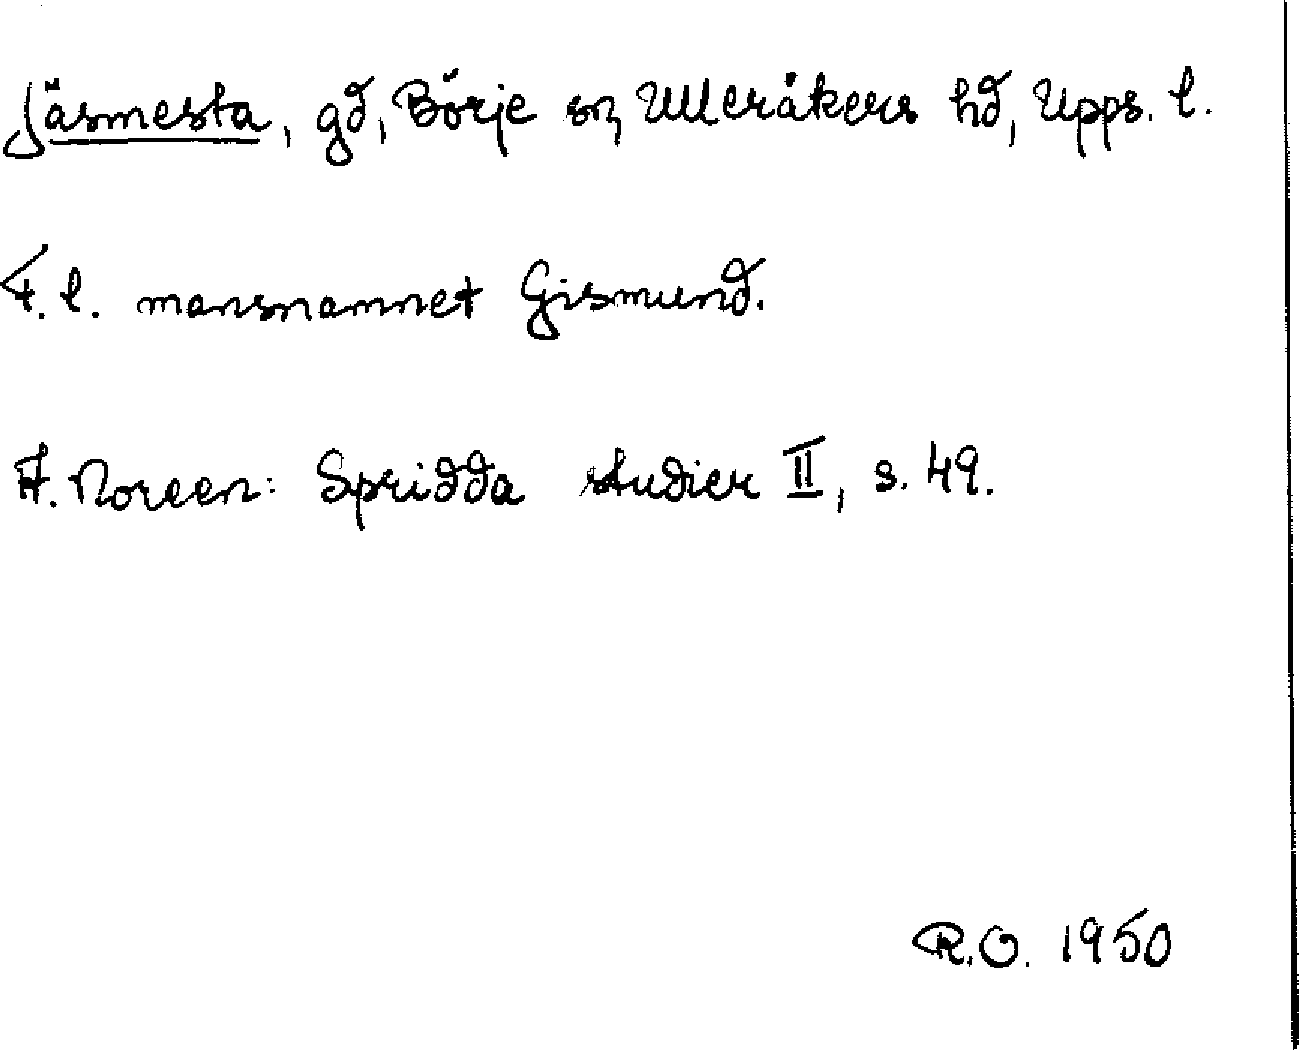 Jäsmesta, gd, Börje sn, Ulleråkers hd, Upps. l.
F. l. mansnamnet Gismund.
A. Noreen: Spridda studier II, s. 49.
R.O. 1950